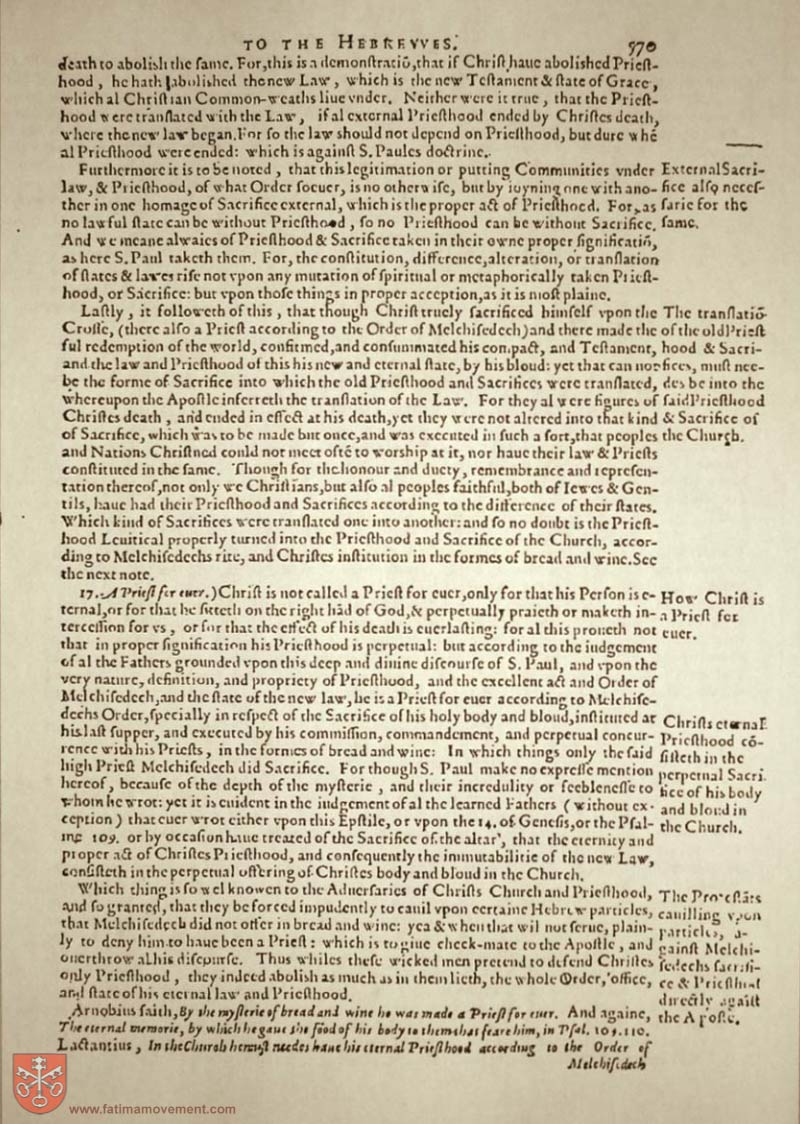 TO THE HEBREVVES. 570
death to abolish the same. For, this is a demonstratiō, that if Christ haue abolished Priest-
hood, he hath abolished the new Law, which is the new Testament & state of Grace,
which al Christian Common-weaths liue vnder. Neither were it true, that the Priest-
hood were translated with the Law, if al external Priesthood ended by Christes death,
where the new law began. For so the law should not depend on Priesthood, but dure whē
al Priesthood were ended: which is against S. Paules doctrine.
Furthermore it is to be noted, that this legitimation or putting Communities vnder
law, & Priesthood, of what Order soeuer, is no otherwise, but by ioyning one with ano-
ther in one homage of Sacrifice external, which is the proper act of Priesthood. For, as
no lawful state can be without Priesthood, so no Priesthood can be without Sacrifice.
And we meane alwaies of Priesthood & Sacrifice taken in their owne proper significatiō,
as here S. Paul taketh them. For, the constitution, difference, alteration, or translation
of states & lawes rise not vpon any mutation of spiritual or metaphorically taken Priest-
hood, or Sacrifice: but vpon those things in proper acception, as it is most plaine.
External Sacri-
fice also neces-
sarie for the
same.
Lastly, it followeth of this, that though Christ truely sacrificed himself vpon the
Crosse, (there also a Priest according to the Order of Melchisedech) and there made the
ful redemption of the world, confirmed, and consummated his compact, and Testament,
and the law and Priesthood of this his new and eternal state, by his bloud: yet that can not
be the forme of Sacrifice into which the old Priesthood and Sacrifices were translated,
whereupon the Apostle inferreth the translation of the Law. For they al were figures of
Christes death, and ended in effect at his death, yet they were not altered into that kind
of Sacrifice, which was to be made but once, and was executed in such a sort, that peoples
and Nations Christned could not meet oftē to worship at it, nor haue their law & Priests
constituted in the same. Though for the honour and duety, remembrance and represen-
tation thereof, not only we Christians, but also al peoples faithful, both of Iewes & Gen-
tils, haue had their Priesthood and Sacrifices according to the difference of their states.
Which kind of Sacrifices were translated one into another: and so no doubt is the Priest-
hood Leuitical properly turned into the Priesthood and Sacrifice of the Church, accor-
ding to Melchisedechs rite, and Christes institution in the formes of bread and wine. See
the next note.
The translatiō
of the old Priest
hood & Sacri-
fices, must nee-
des be into the
said Priesthood
& Sacrifice of
the Church.
17. A Priest for euer.) Christ is not called a Priest for euer, only for that his Person is e-
ternal, or for that he sitteth on the right hād of God, & perpetually praieth or maketh in-
tercession for vs, or for that the effect of his death is euerlasting: for al this proueth not
that in proper signification his Priesthood is perpetual: but according to the iudgement
of al the Fathers grounded vpon this deep and diuine discourse of S. Paul, and vpon the
very nature, definition, and propriety of Priesthood, and the excellent act and Order of
Melchisedech, and the state of the new law, he is a Priest for euer according to Melchise-
dechs Order, specially in respect of the Sacrifice of his holy body and bloud, instituted at
his last supper, and executed by his commission, commandement, and perpetual concur-
rence with his Priests, in the formes of bread and wine: In which things only the said
high Priest Melchisedech did Sacrifice. For though S. Paul make no expresse mention
hereof, because of the depth of the mysterie, and their incredulity or feeblenesse to
whom he wrot: yet it is euident in the iudgement of al the learned Fathers (without ex-
ception) that euer wrot either vpon this Epstile, or vpon the 14. of Genesis, or the Psal-
me 109. or by occasion haue treated of the Sacrifice of the altar, that the eternity and
proper act of Christes Priesthood, and consequently the immutabilitie of the new Law,
consisteth in the perpetual offering of Christes body and bloud in the Church.
How Christ is
a Priest for
euer.
Christs eternal
Priesthood cō-
sisteth in the
perpetual Sacri-
fice of his body
and bloud in
the Church.
Which thing is so wel knowen to the Aduersaries of Christs Church and Priesthood,
and so granted, that they be forced impudently to cauil vpon certaine Hebrew particles,
that Melchisedech did not offer in bread and wine: yea & when that wil not serue, plain-
ly to deny him to haue been a Priest: which is to giue check-mate to the Apostle, and
ouerthrow al his discourse. Thus whiles these wicked men pretend to defend Christes
only Priesthood, they indeed abolish as much as in them lieth, the whole Order, office,
and state of his eternal law and Priesthood.
The Protestāts
cauilling vpon
particles, a-
gainst Melchi-
sedechs sacrifi-
ce & Priesthod
directly agaīst
the Apostle.
Arnobius saith, By the mysterie of bread and wine he was made a Priest for euer. And againe,
The eternal memorie, by which he gaue the food of his body to them that feare him, in Psal. 109. 110.
Lactantius, In the Church he must needes haue his eternal Priesthood according to the Order of
Melchisedech
www.fatimamovement.com